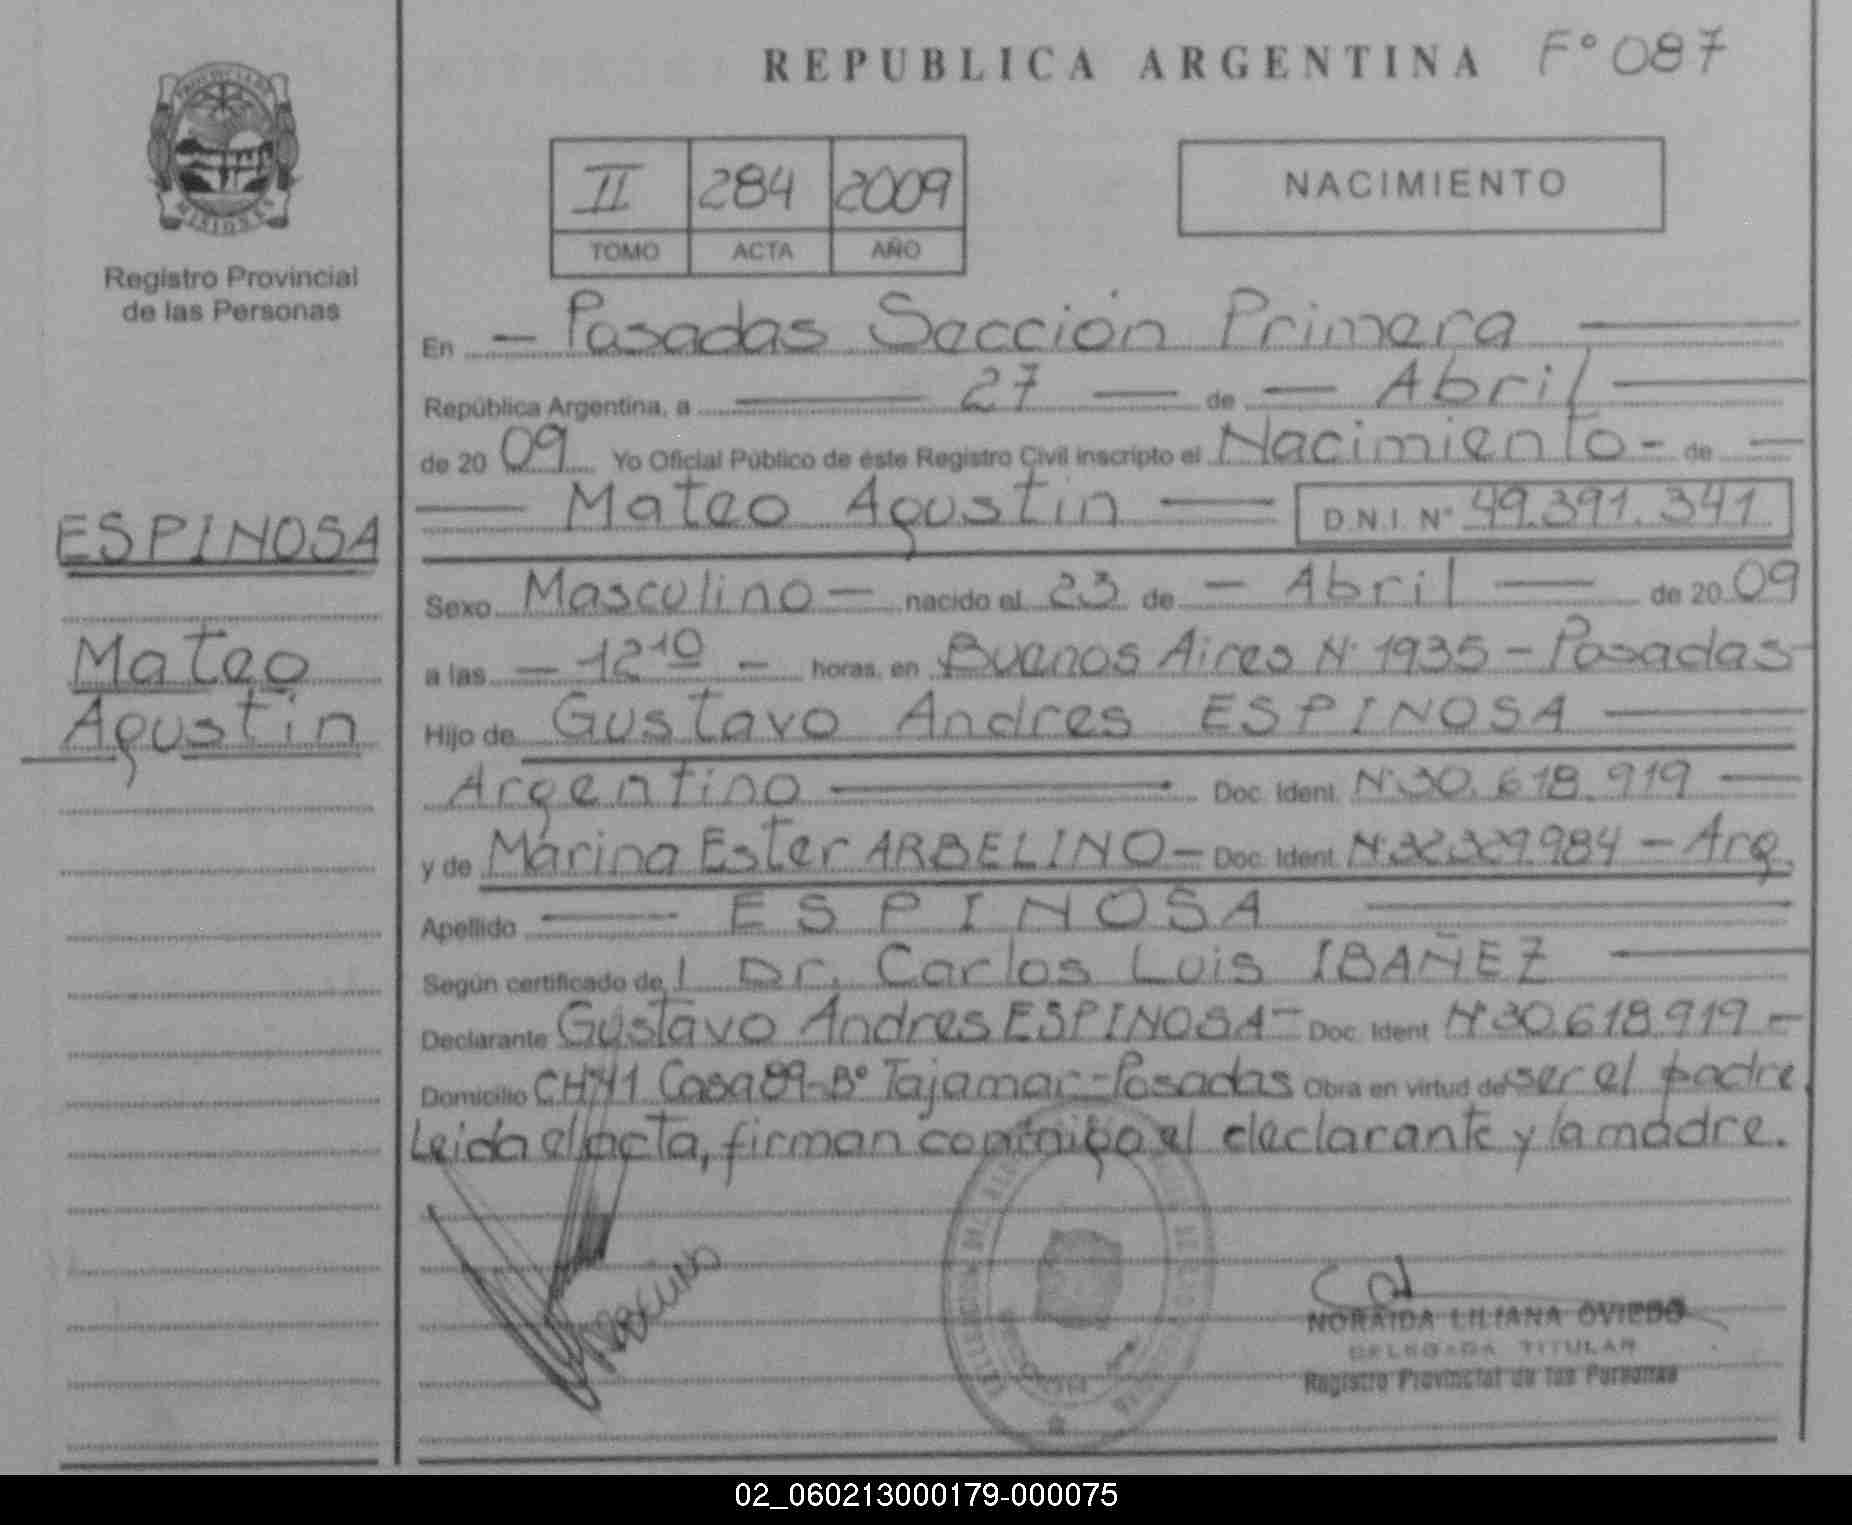 REPUBLICA ARGENTINA F° 087
PROVINCIA DE
MISIONES
Registro Provincial
de las Personas
II 284 2009
TOMO ACTA AÑO
NACIMIENTO
En — Posadas Sección Primera —
República Argentina, a — 27 — de — Abril —
de 20 09 Yo Oficial Público de éste Registro Civil inscripto el Nacimiento - de —
— Mateo Agustin — D.N.I. N° 49.391.341
ESPINOSA
Mateo
Agustin
Sexo Masculino — nacido el 23 de — Abril — de 20 09
a las — 12 10 — horas, en Buenos Aires N° 1935 - Posadas-
Hijo de Gustavo Andres ESPINOSA —
Argentino — Doc. Ident. N° 30.618.919 —
y de Marina Ester ARBELINO - Doc. Ident. N° 32.329.984 - Arg.
Apellido — ESPINOSA —
Según certificado del Dr. Carlos Luis IBAÑEZ —
Declarante Gustavo Andres ESPINOSA - Doc. Ident N° 30.618.919 -
Domicilio CH 71 Casa 89 - B° Tajamar - Posadas Obra en virtud de ser el padre.
Leida el acta, firman conmigo el declarante y la madre.
NORAIDA LILIANA OVIEDO
DELEGADA TITULAR
Registro Provincial de las Personas
02_060213000179-000075